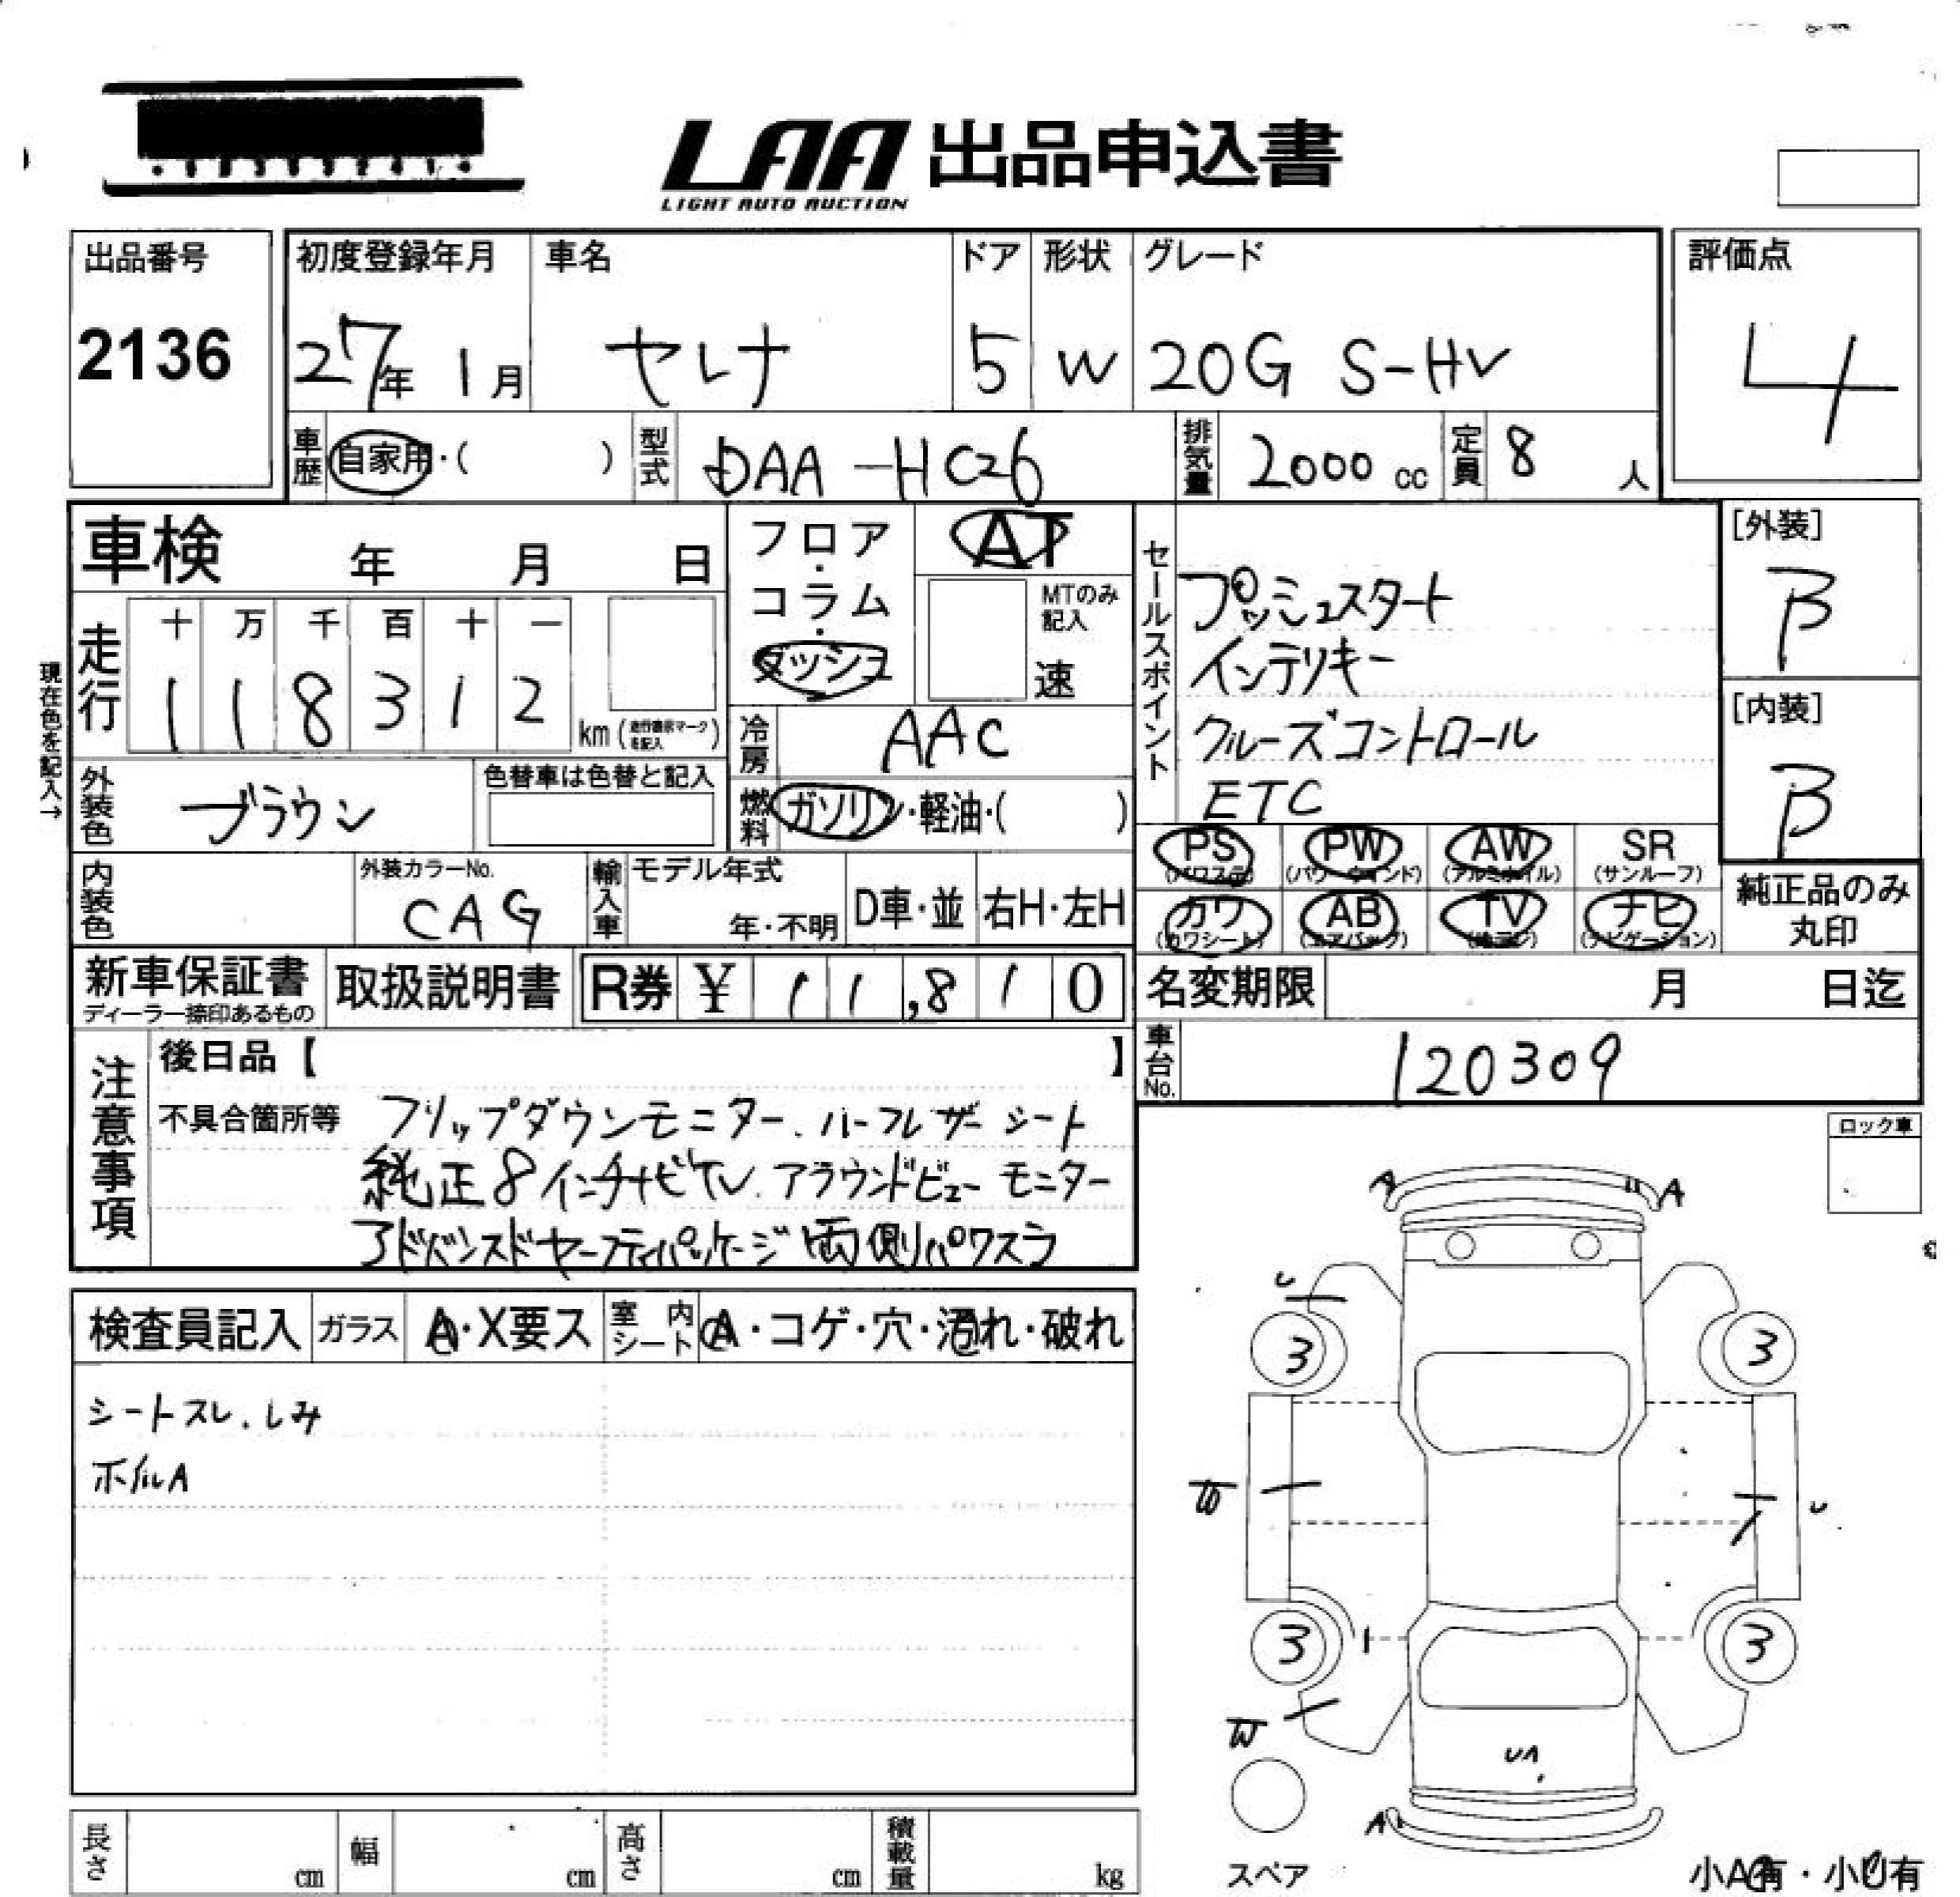 LAA 出品申込書
LIGHT AUTO AUCTION
出品番号
2136
初度登録年月 車名 ドア 形状 グレード
27年 1月 セレナ 5 W 20G S-HV
評価点
4
車歴 自家用・( ) 型式 DAA-HC26 排気量 2000 cc 定員 8 人
車検 年 月 日
フロア・コラム・ダッシュ
AT
MTのみ記入
速
現在色を記入→
走行
十 万 千 百 十 一
1 1 8 3 1 2 km
冷房 AAC
セールスポイント
プッシュスタート
インテリキー
クルーズコントロール
ETC
[外装]
B
[内装]
B
外装色 ブラウン
色替車は色替と記入
燃料 ガソリン・軽油・( )
PS (パワステ) PW (パワーウインド) AW (アルミホイル) SR (サンルーフ)
カワ (カワシート) AB (エアバック) TV ナビ (ナビゲーション)
純正品のみ丸印
内装色
外装カラーNo.
CAG
輸入車
モデル年式
年・不明
D車・並 右H・左H
新車保証書
ディーラー捺印あるもの
取扱説明書
R券 ¥ 11,810
名変期限 月 日迄
車台No. 120309
注意事項
後日品【 】
不具合箇所等 フリップダウンモニター、ハーフレザーシート
純正8インチナビTV、アラウンドビューモニター
アドバンスドセーフティパッケージ 両側パワスラ
ロック車
検査員記入 ガラス A・X要ス 室内シート A・コゲ・穴・濡れ・破れ
シートスレ、しみ
ホイルA
A A
U
3 3
W U
3 3
W
UA
A
スペア
小A有・小U有
長さ cm 幅 cm 高さ cm 積載量 kg